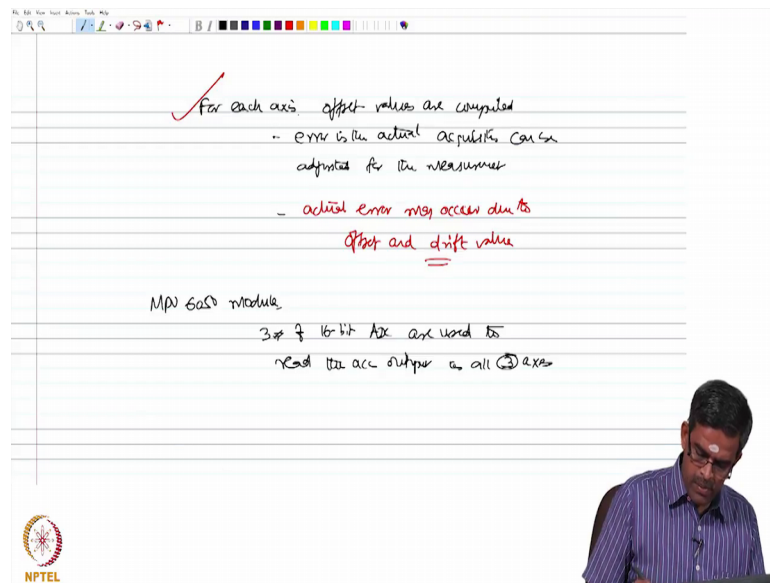 File Edit View Insert Actions Tools Help
B I
For each axis offset values are computed
- error in the actual acquisition can be
adjusted for the measurement
- actual error may occur due to
offset and drift value
MPU 6050 module
3# of 16-bit ADC are used to
read the acc output on all 3 axes
NPTEL